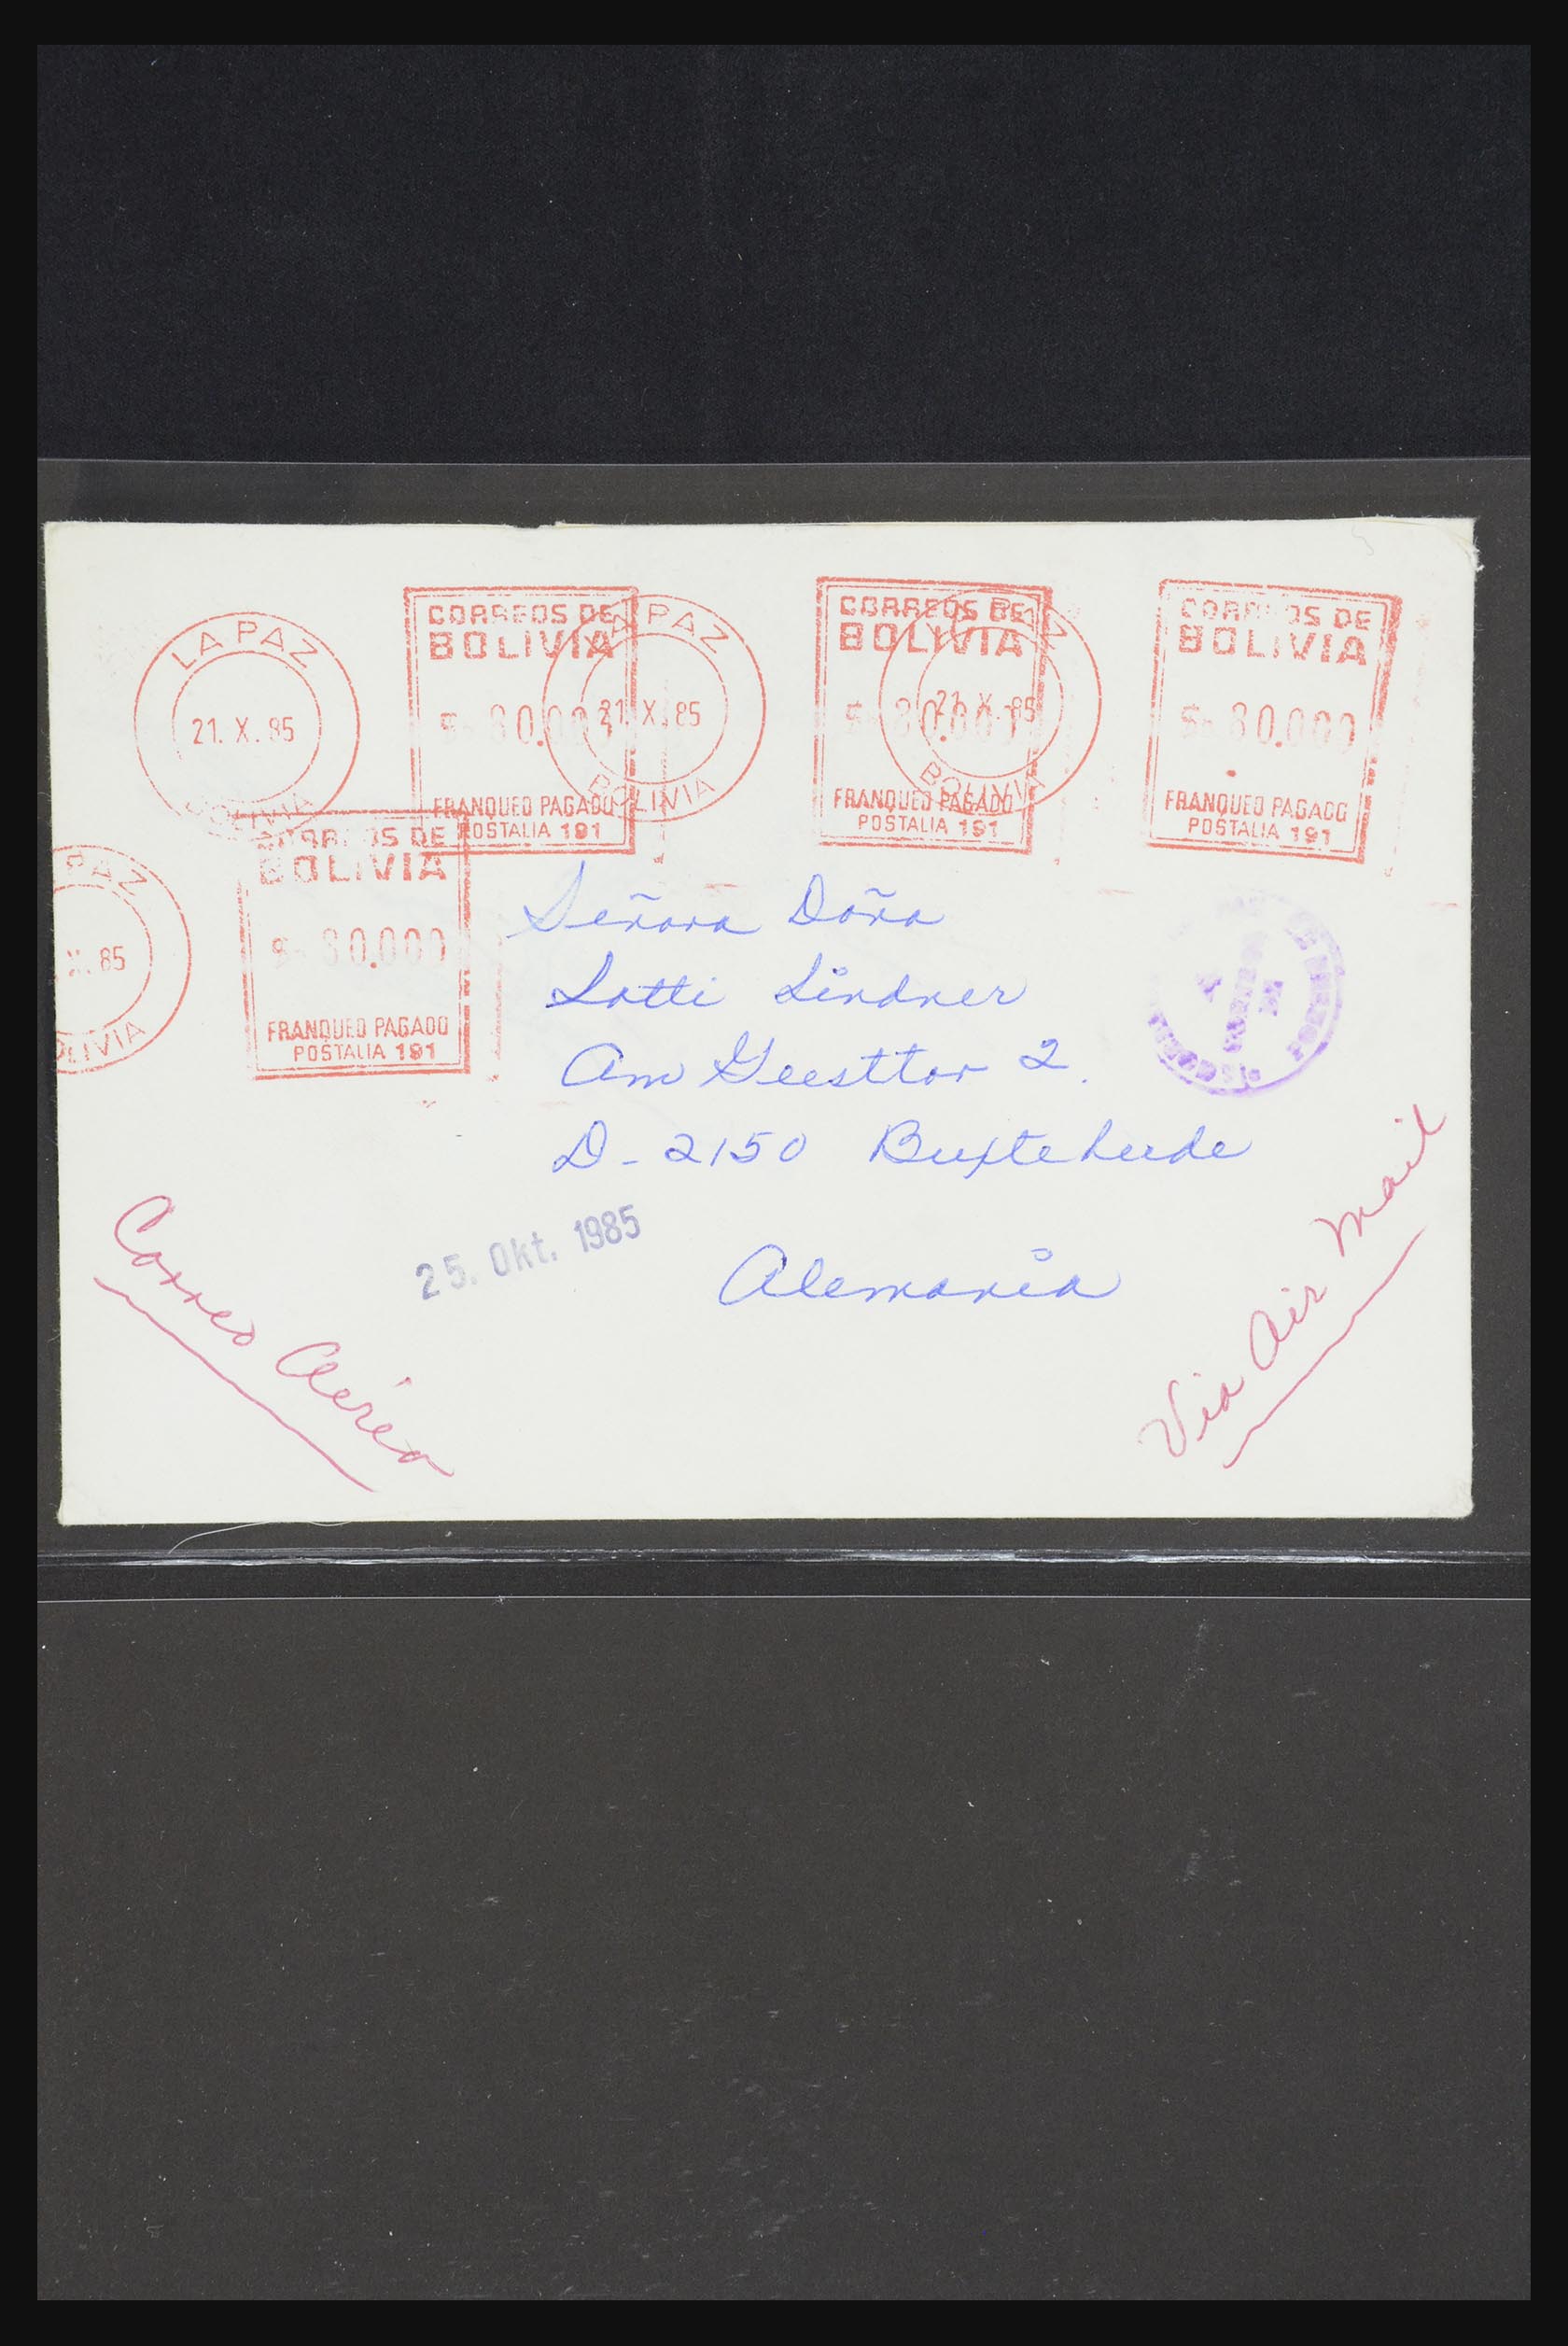 LA PAZ
21. X. 85
BOLIVIA
CORREOS DE
BOLIVIA
80.000
FRANQUEO PAGADO
POSTALIA 191
PAZ
21. X. 85
BOLIVIA
CORREOS DE
BOLIVIA
80.000
FRANQUEO PAGADO
POSTALIA 191
21. X. 85
BOLIVIA
CORREOS DE
BOLIVIA
80.000
FRANQUEO PAGADO
POSTALIA 191
PAZ
X. 85
OLIVIA
CORREOS DE
BOLIVIA
80.000
FRANQUEO PAGADO
POSTALIA 191
Señora Doña
Lotti Lindner
Am Geesttor 2.
D-2150 Buxtehude
Alemania
25. Okt. 1985
Correo Aéreo
Via Air Mail